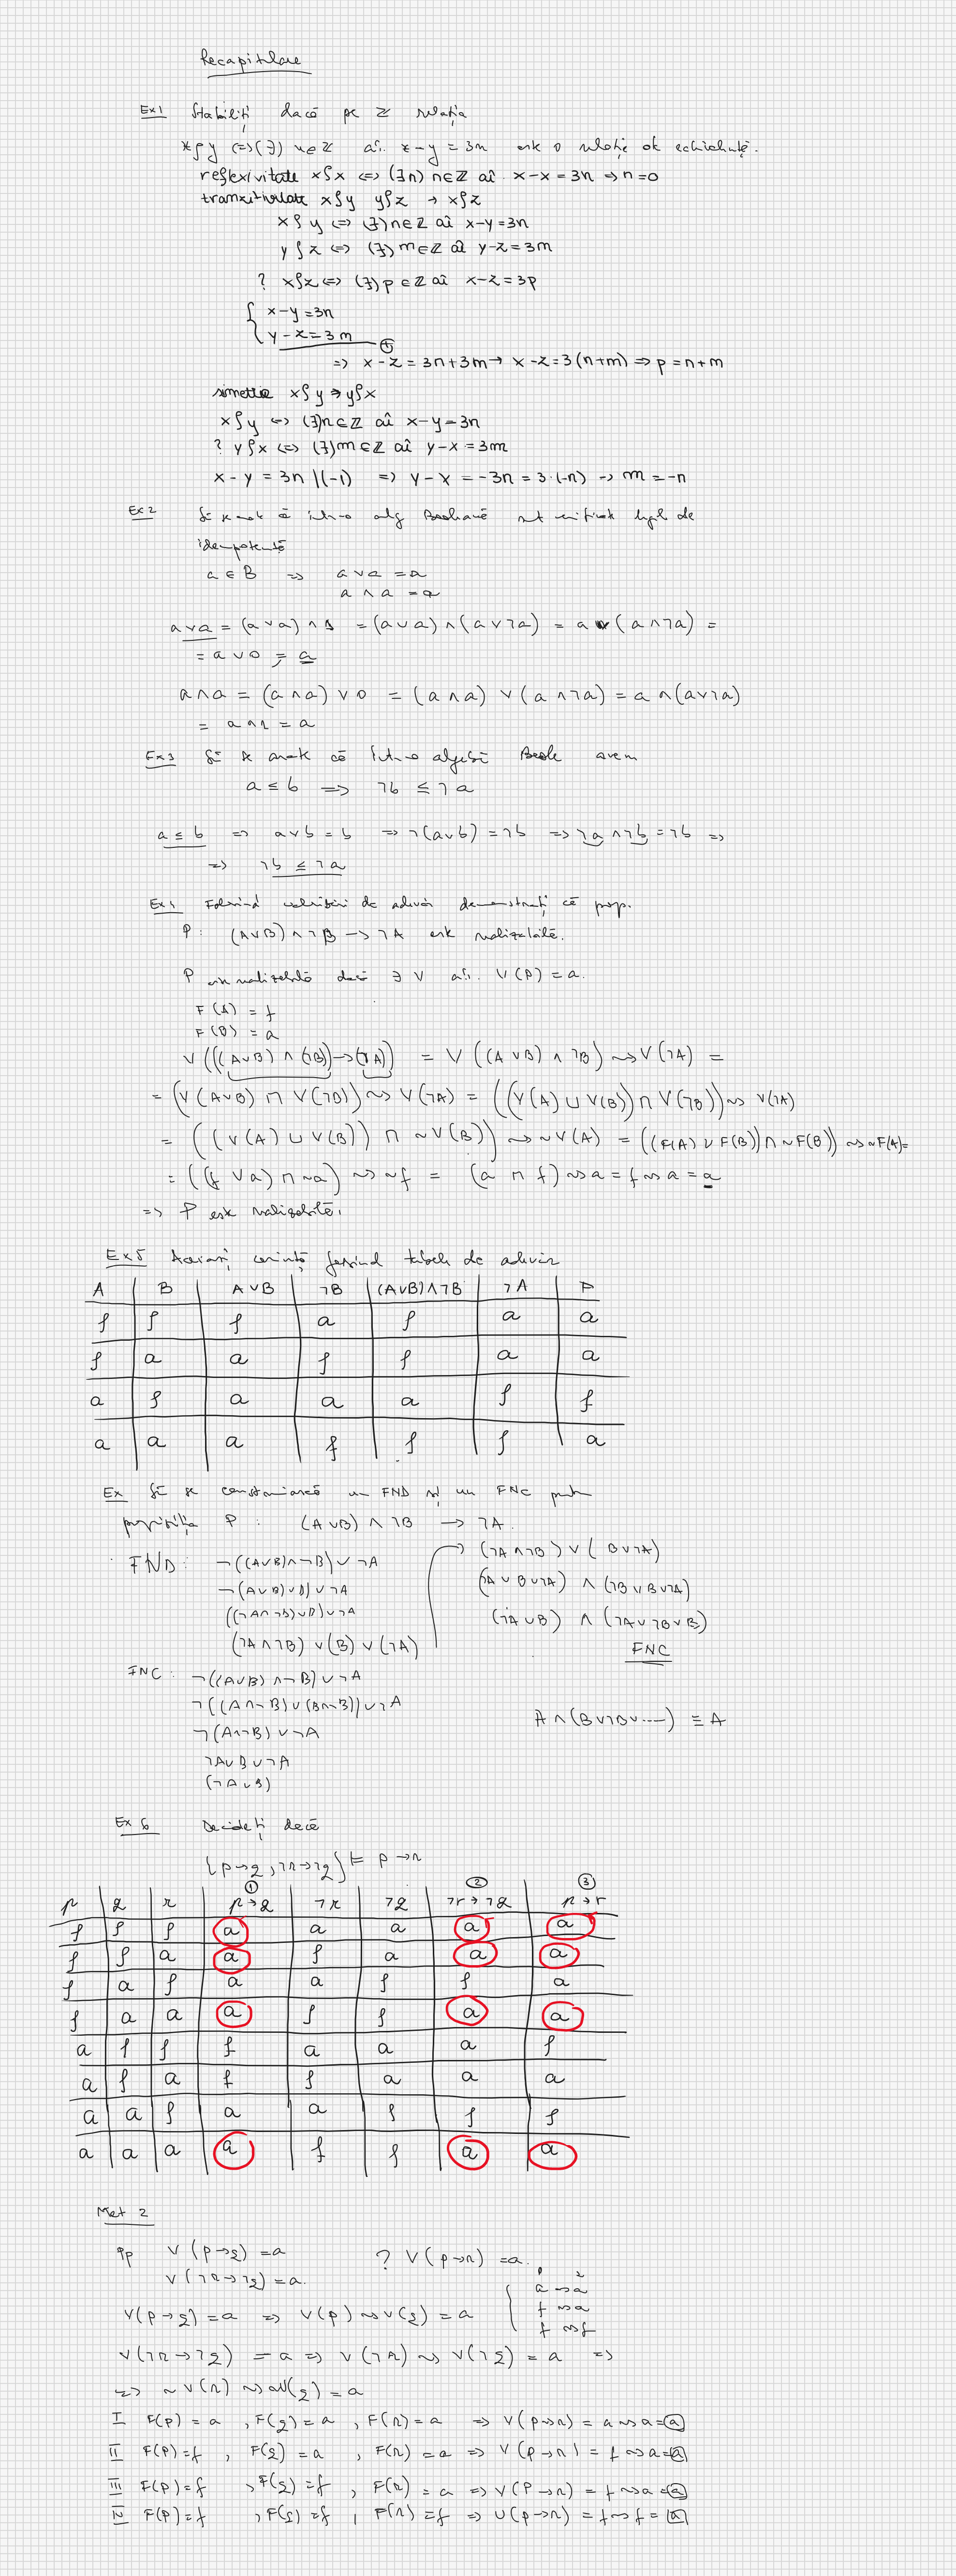 Recapitulare
Ex1 Stabiliți dacă pe ℤ relația
xρy <=> (∃) n∈ℤ aî. x-y = 3n este o relație de echivalență.
reflexivitate xρx <=> (∃n) n∈ℤ aî x-x = 3n => n=0
tranzitivitate xρy yρz → xρz
xρy <=> (∃) n∈ℤ aî x-y=3n
yρz <=> (∃) m∈ℤ aî y-z=3m
? xρz <=> (∃) p∈ℤ aî x-z=3p
{ x-y=3n
y-z=3m ⊕
=> x-z = 3n+3m → x-z=3(n+m) => p=n+m
simetrie xρy → yρx
xρy <=> (∃)n∈ℤ aî x-y=3n
? yρx <=> (∃)m∈ℤ aî y-x=3m
x-y = 3n |(-1) => y-x = -3n = 3·(-n) → m=-n
Ex2 Să se arate că într-o alg Booleană sunt verificate legile de
idempotență
a∈B => a∨a = a
a∧a = a
a∨a = (a∨a)∧1 = (a∨a)∧(a∨¬a) = a∨(a∧¬a) =
= a∨0 = a
a∧a = (a∧a)∨0 = (a∧a)∨(a∧¬a) = a∧(a∨¬a)
= a∧1 = a
Ex3 Să se arate că într-o algebră Boole avem
a≤b => ¬b ≤ ¬a
a≤b => a∨b = b => ¬(a∨b) = ¬b => ¬a∧¬b = ¬b =>
=> ¬b ≤ ¬a
Ex4 Folosind de adevăr demonstrați că prop.
P: (A∨B)∧¬B → ¬A este realizabilă.
P este realizabilă dacă ∃ V aî. V(P) = a.
F(A) = f
F(B) = a
V(((A∨B)∧(¬B))→(¬A)) = V((A∨B)∧¬B) ⤳ V(¬A) =
= (V(A∨B) ⊓ V(¬B)) ⤳ V(¬A) = ((V(A)∪V(B)) ⊓ V(¬B)) ⤳ V(¬A)
= ((V(A)∪V(B)) ⊓ ~V(B)) ⤳ ~V(A) = ((F(A)∪F(B)) ⊓ ~F(B)) ⤳ ~F(A) =
= ((f ∨ a) ⊓ ~a) ⤳ ~f = (a ⊓ f) ⤳ a = f ⤳ a = a
=> P este realizabilă.
Ex5 Aceiași cerință folosind tabele de adevăr
A B A∨B ¬B (A∨B)∧¬B ¬A P
f f f a f a a
f a a f f a a
a f a a a f f
a a a f f f a
Ex Să se construiască un FND și un FNC pentru
propoziția P: (A∨B)∧¬B → ¬A.
FND: ¬((A∨B)∧¬B)∨¬A
¬(A∨B)∨B)∨¬A
((¬A∧¬B)∨B)∨¬A
(¬A∧¬B)∨(B)∨(¬A)
(¬A∧¬B)∨(B∨¬A)
(¬A∨B∨¬A) ∧ (¬B∨B∨¬A)
(¬A∨B) ∧ (¬A∨¬B∨B)
FNC
FNC: ¬((A∨B)∧¬B)∨¬A
¬((A∧¬B)∨(B∧¬B))∨¬A
¬(A∧¬B)∨¬A
¬A∨B∨¬A
(¬A∨B)
A∧(B∨¬B∨----) ≡ A
Ex 6 Decideți dacă
{p→q, ¬r→¬q} ⊨ p→r
① ② ③
p q r p→q ¬r ¬q ¬r→¬q p→r
f f f a a a a a
f f a a f a a a
f a f a a f f a
f a a a f f a a
a f f f a a a f
a f a f f a a a
a a f a a f f f
a a a a f f a a
Met 2
Pp V(p→q) = a ? V(p→r) = a.
V(¬r→¬q) = a.
p q
a ⤳ a
f ⤳ a
f ⤳ f
V(p→q) = a => V(p) ⤳ V(q) = a
V(¬r→¬q) = a => V(¬r) ⤳ V(¬q) = a =>
=> ~V(r) ⤳ ~V(q) = a
I F(p) = a, F(q) = a, F(r) = a => V(p→r) = a⤳a = a
II F(p)=f, F(q) = a, F(r) = a => V(p→r) = f⤳a = a
III F(p)=f, F(q)=f, F(r) = a => V(p→r) = f⤳a = a
IV F(p)=f, F(q)=f, F(r)=f => V(p→r) = f⤳f = a